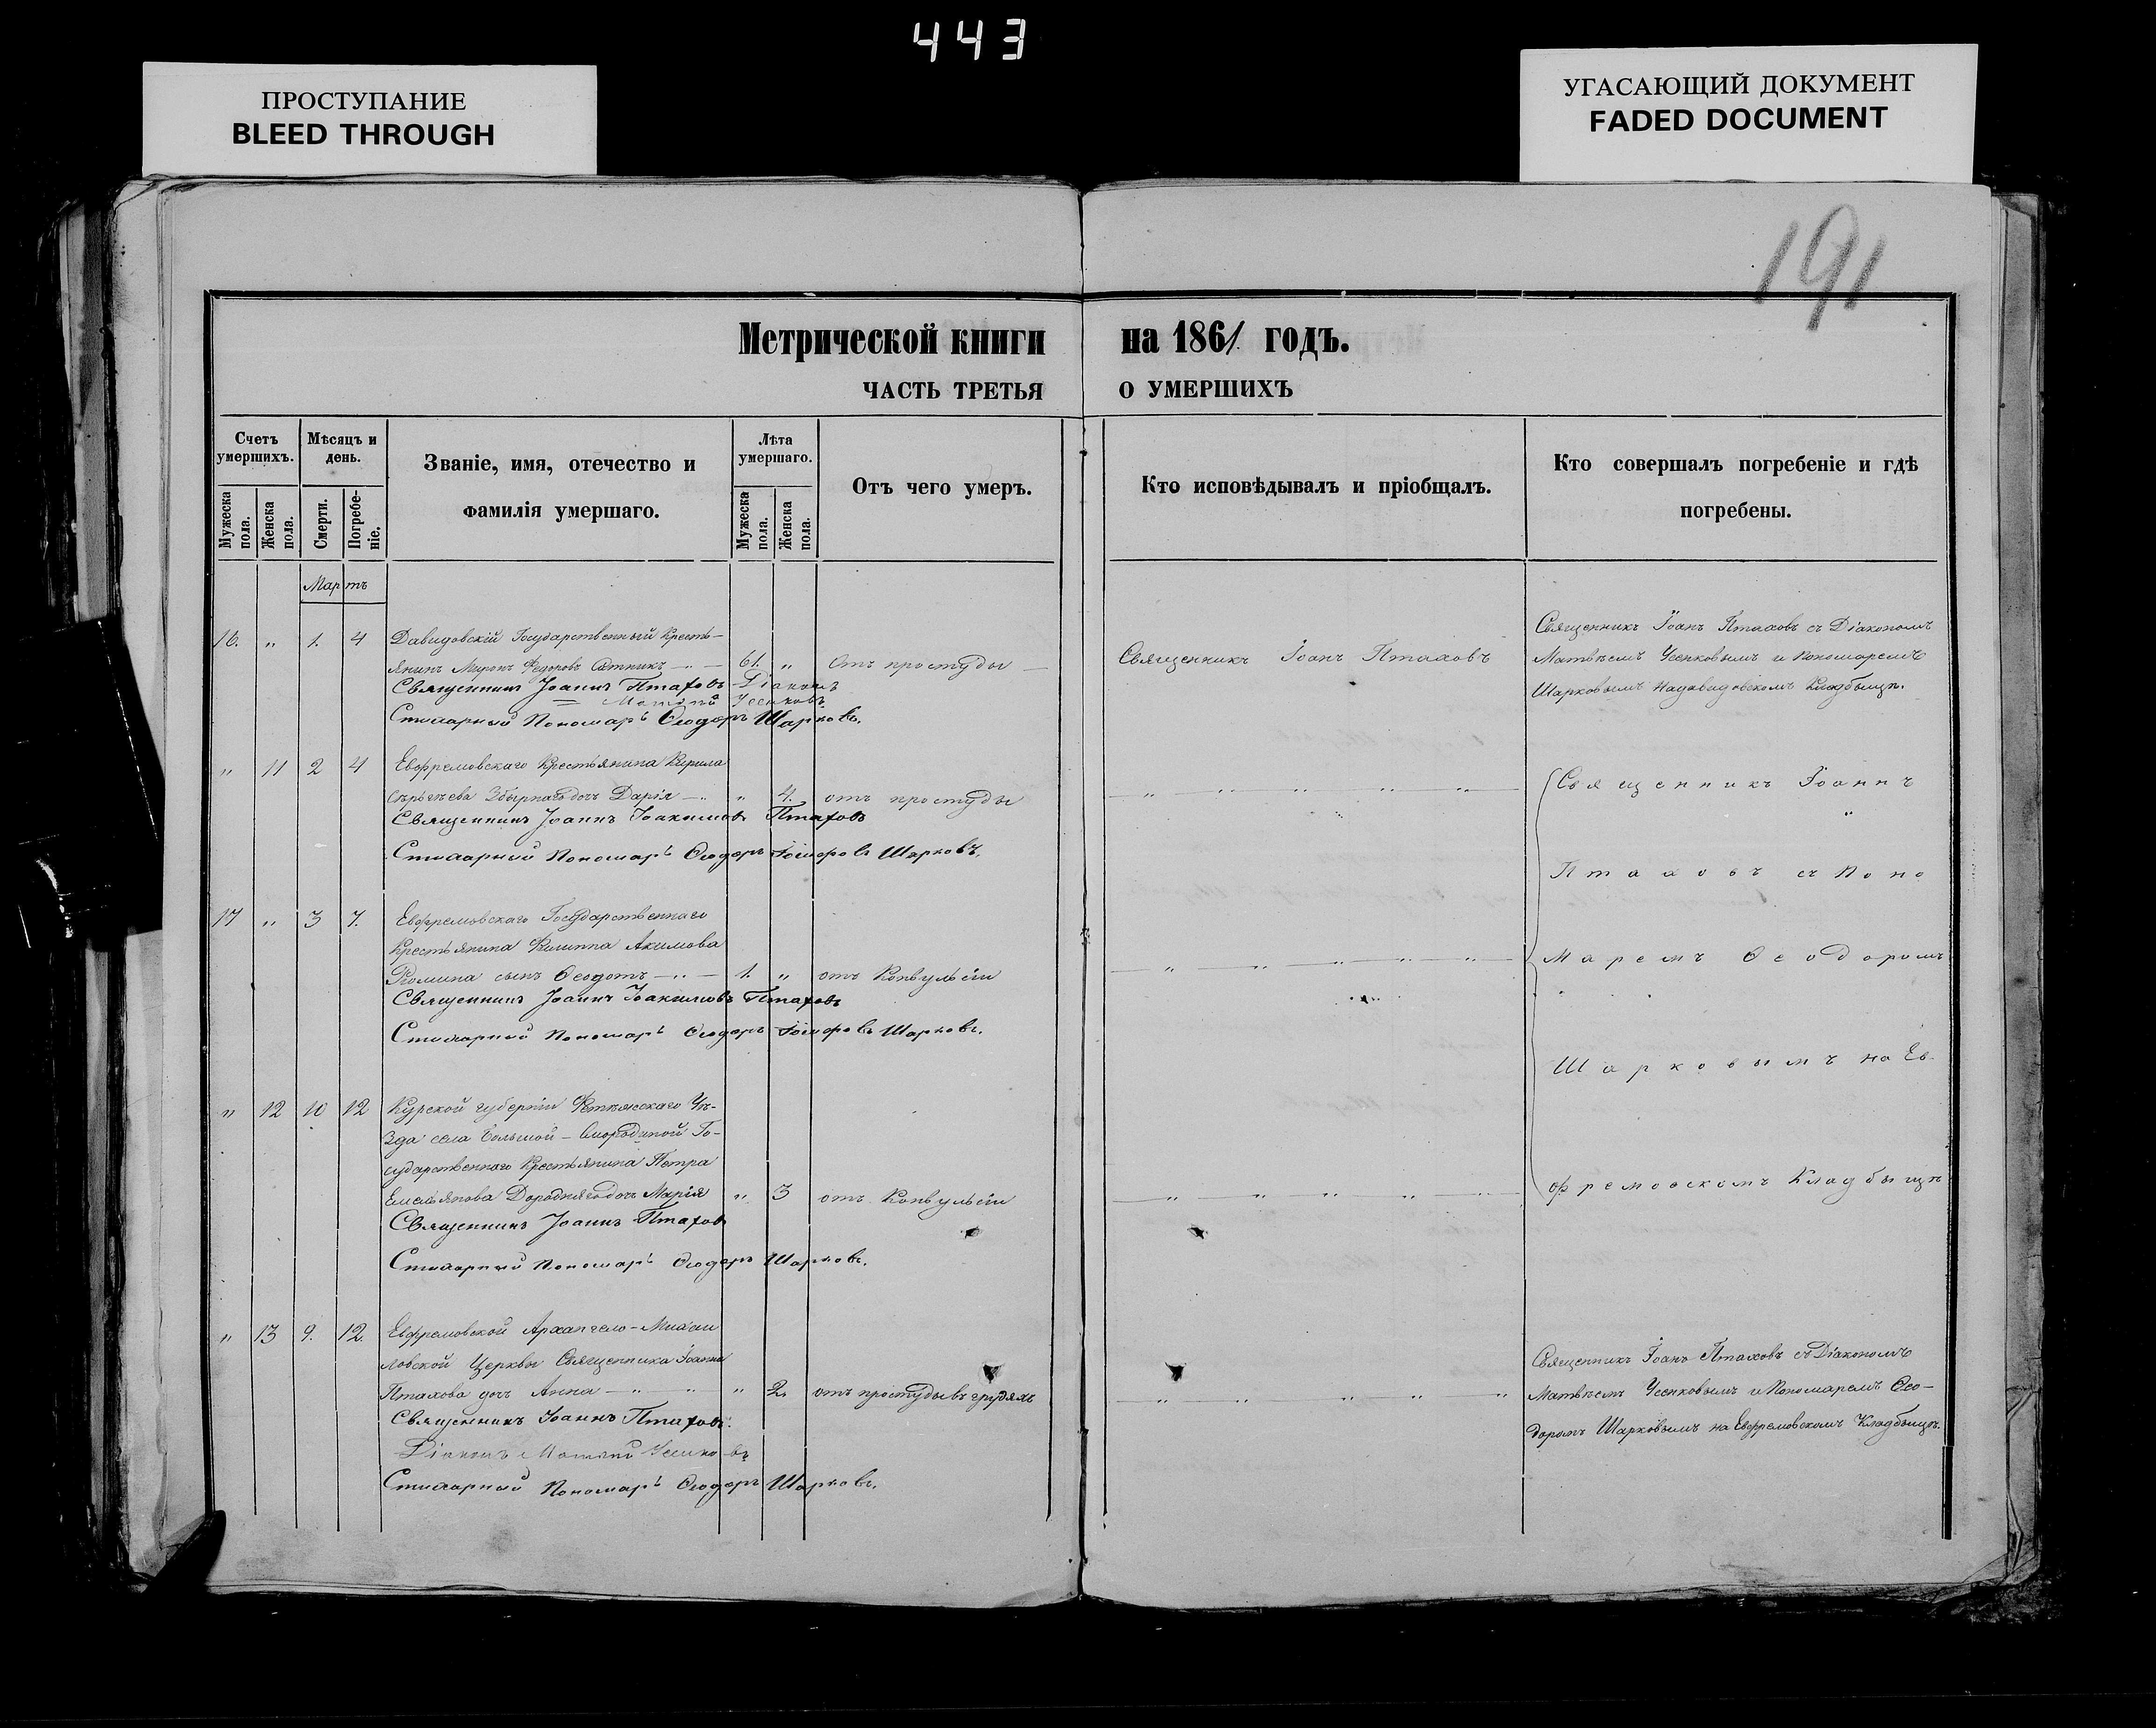 443
ПРОСТУПАНИЕ
BLEED THROUGH
УГАСАЮЩИЙ ДОКУМЕНТ
FADED DOCUMENT
191
Метрической книги на 1861 годъ.
ЧАСТЬ ТРЕТЬЯ О УМЕРШИХЪ
Счетъ умершихъ.
Мужеска пола.
Женска пола.
Мѣсяцъ и день.
Смерти.
Погребе-ніе.
Званіе, имя, отечество и
фамилія умершаго.
Лѣта умершаго.
Мужеска пола.
Женска пола.
Отъ чего умеръ.
Кто исповѣдывалъ и пріобщалъ.
Кто совершалъ погребеніе и гдѣ
погребены.
Мартъ
16. „ 1. 4 Давидовскій Государственный Кресть-
янинъ Миронъ Федоровъ 61. „ Отъ простуды
Священникъ Іоаннъ Птаховъ Діаконъ
Матѳій Усенковъ
Стихарный Пономарь Ѳеодоръ Шарковъ.
Священникъ Іоанъ Птаховъ
Священникъ Іоанъ Птаховъ съ Діакономъ
Матвѣемъ Усенковымъ и Пономаремъ
Шарковымъ на давидовскомъ Кладбищѣ.
„ 11 2 4 Евфремовскаго Крестьянина Кирила
дочь Дарія „ 4. отъ простуды
Священникъ Іоаннъ Іоакимовъ Птаховъ
Стихарный Пономарь Ѳеодоръ Іосифовъ Шарковъ.
17 „ 3 7. Евфремовскаго Государственнаго
Крестьянина Филиппа Акимова
сынъ Ѳеодотъ 1. „ отъ Конвульсіи
Священникъ Іоаннъ Іоакимовъ Птаховъ
Стихарный Пономарь Ѳеодоръ Іосифовъ Шарковъ.
„ 12 10 12 Курской губерніи Уѣ-
зда села Большой Го-
сударственнаго Крестьянина Петра
Емельянова дочь Марія „ 3 отъ Конвульсіи
Священникъ Іоаннъ Птаховъ
Стихарный Пономарь Ѳеодоръ Шарковъ.
Священникъ Іоаннъ
Птаховъ съ Поно
маремъ Ѳеодоромъ
Шарковымъ на Ев-
фремовскомъ Кладбищѣ
„ 13 9. 12. Евфремовской Архангело-Михаи
ловской Церквы Священника Іоанна
Птахова дочь Анна „ 2. отъ простуды въ грудяхъ
Священникъ Іоаннъ Птаховъ.
Діаконъ Матѳій Усенковъ
Стихарный Пономарь Ѳеодоръ Шарковъ.
Священникъ Іоанъ Птаховъ съ Діакономъ
Матвѣемъ Усенковымъ и Пономаремъ Ѳео-
доромъ Шарковымъ на Евфремовскомъ Кладбищѣ.